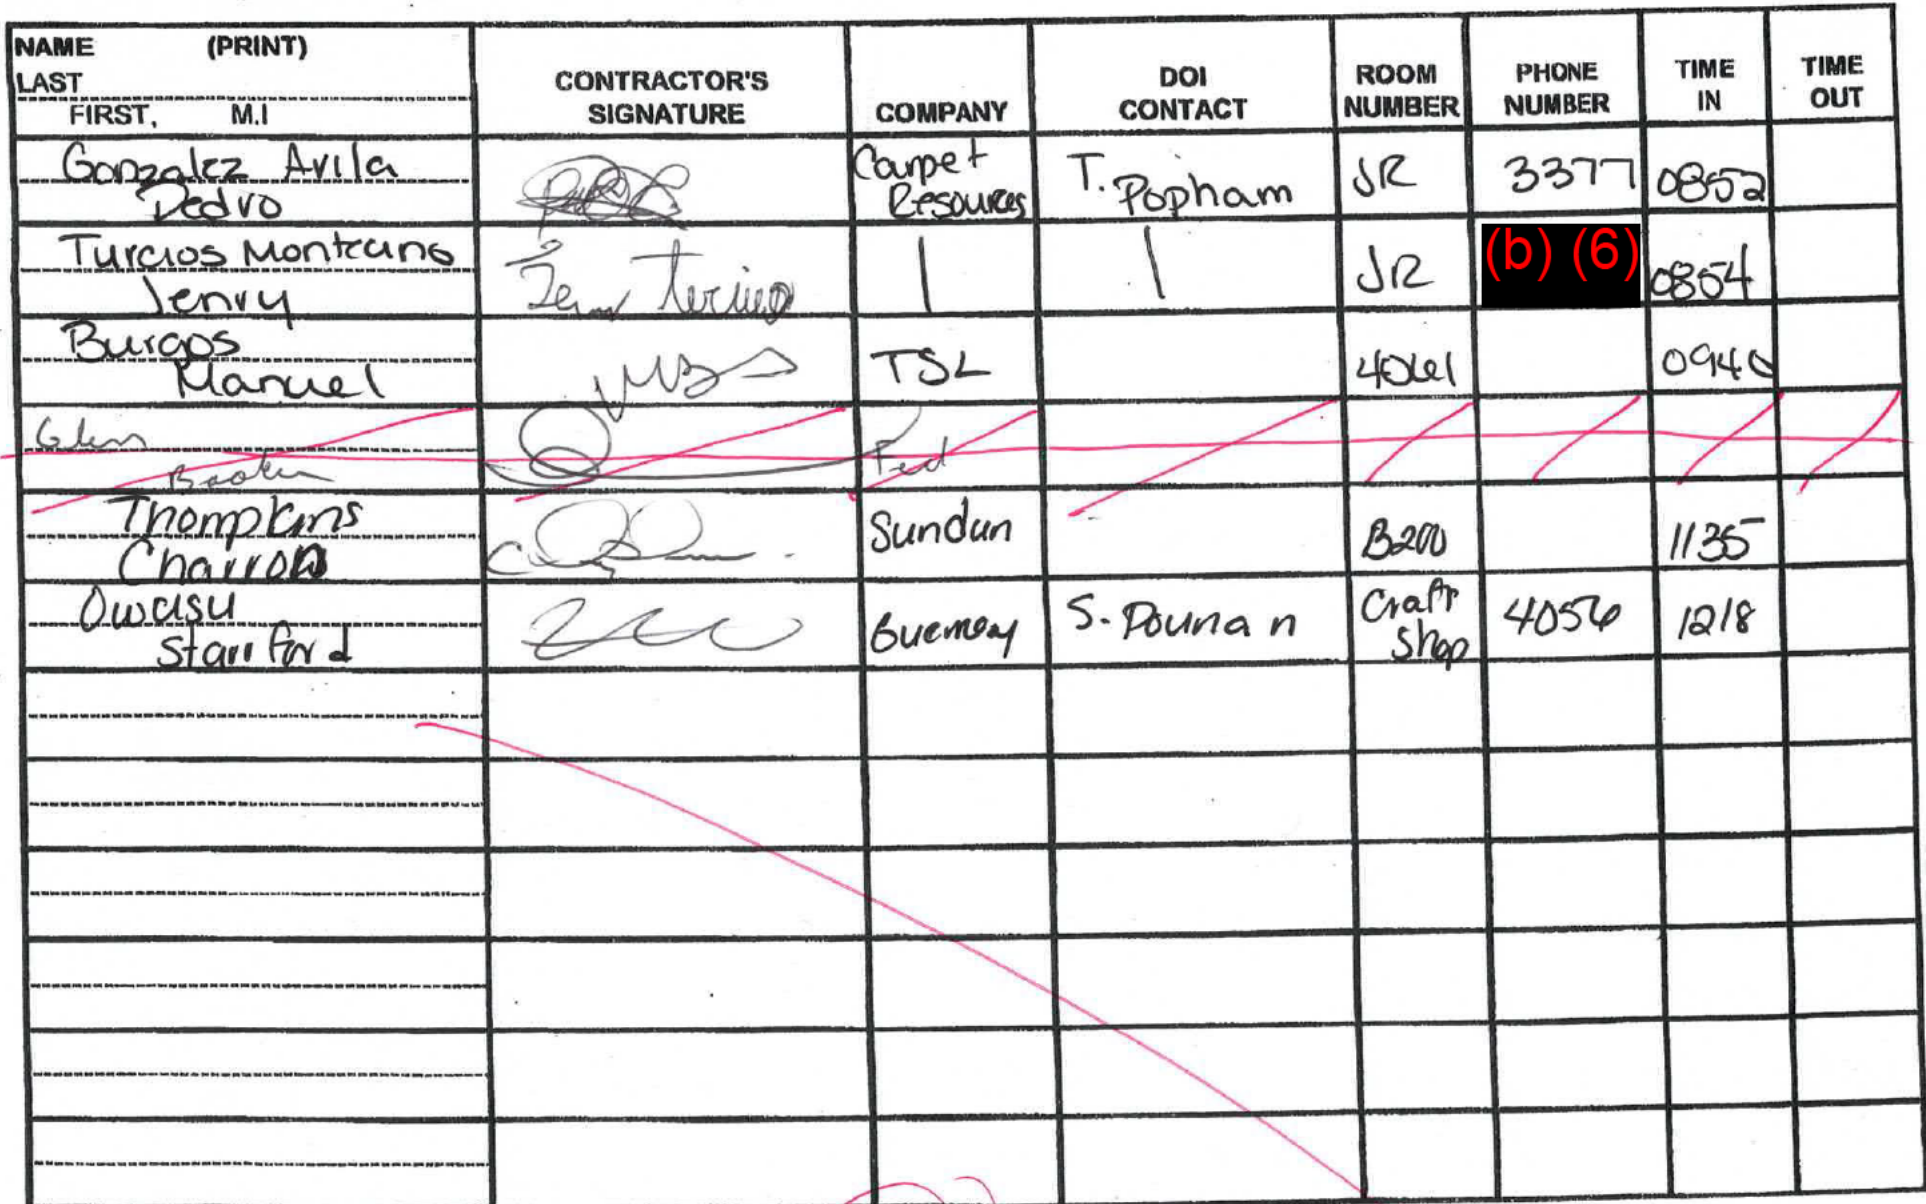 NAME (PRINT)
LAST
FIRST, M.I
CONTRACTOR'S
SIGNATURE
COMPANY
DOI
CONTACT
ROOM
NUMBER
PHONE
NUMBER
TIME
IN
TIME
OUT
Gonzalez Avila
Pedro
Carpet
Resources
T. Popham
JR
3377
0852
Turcios Monteano
Jenry
JR
(b) (6)
0854
Burgos
Manuel
TSL
4061
0940
Glen
Booker
Fed
Thompkins
Charron
Sundun
B200
1135
Owusu
Stanford
S. Pounan
Craft
Shop
4056
1218